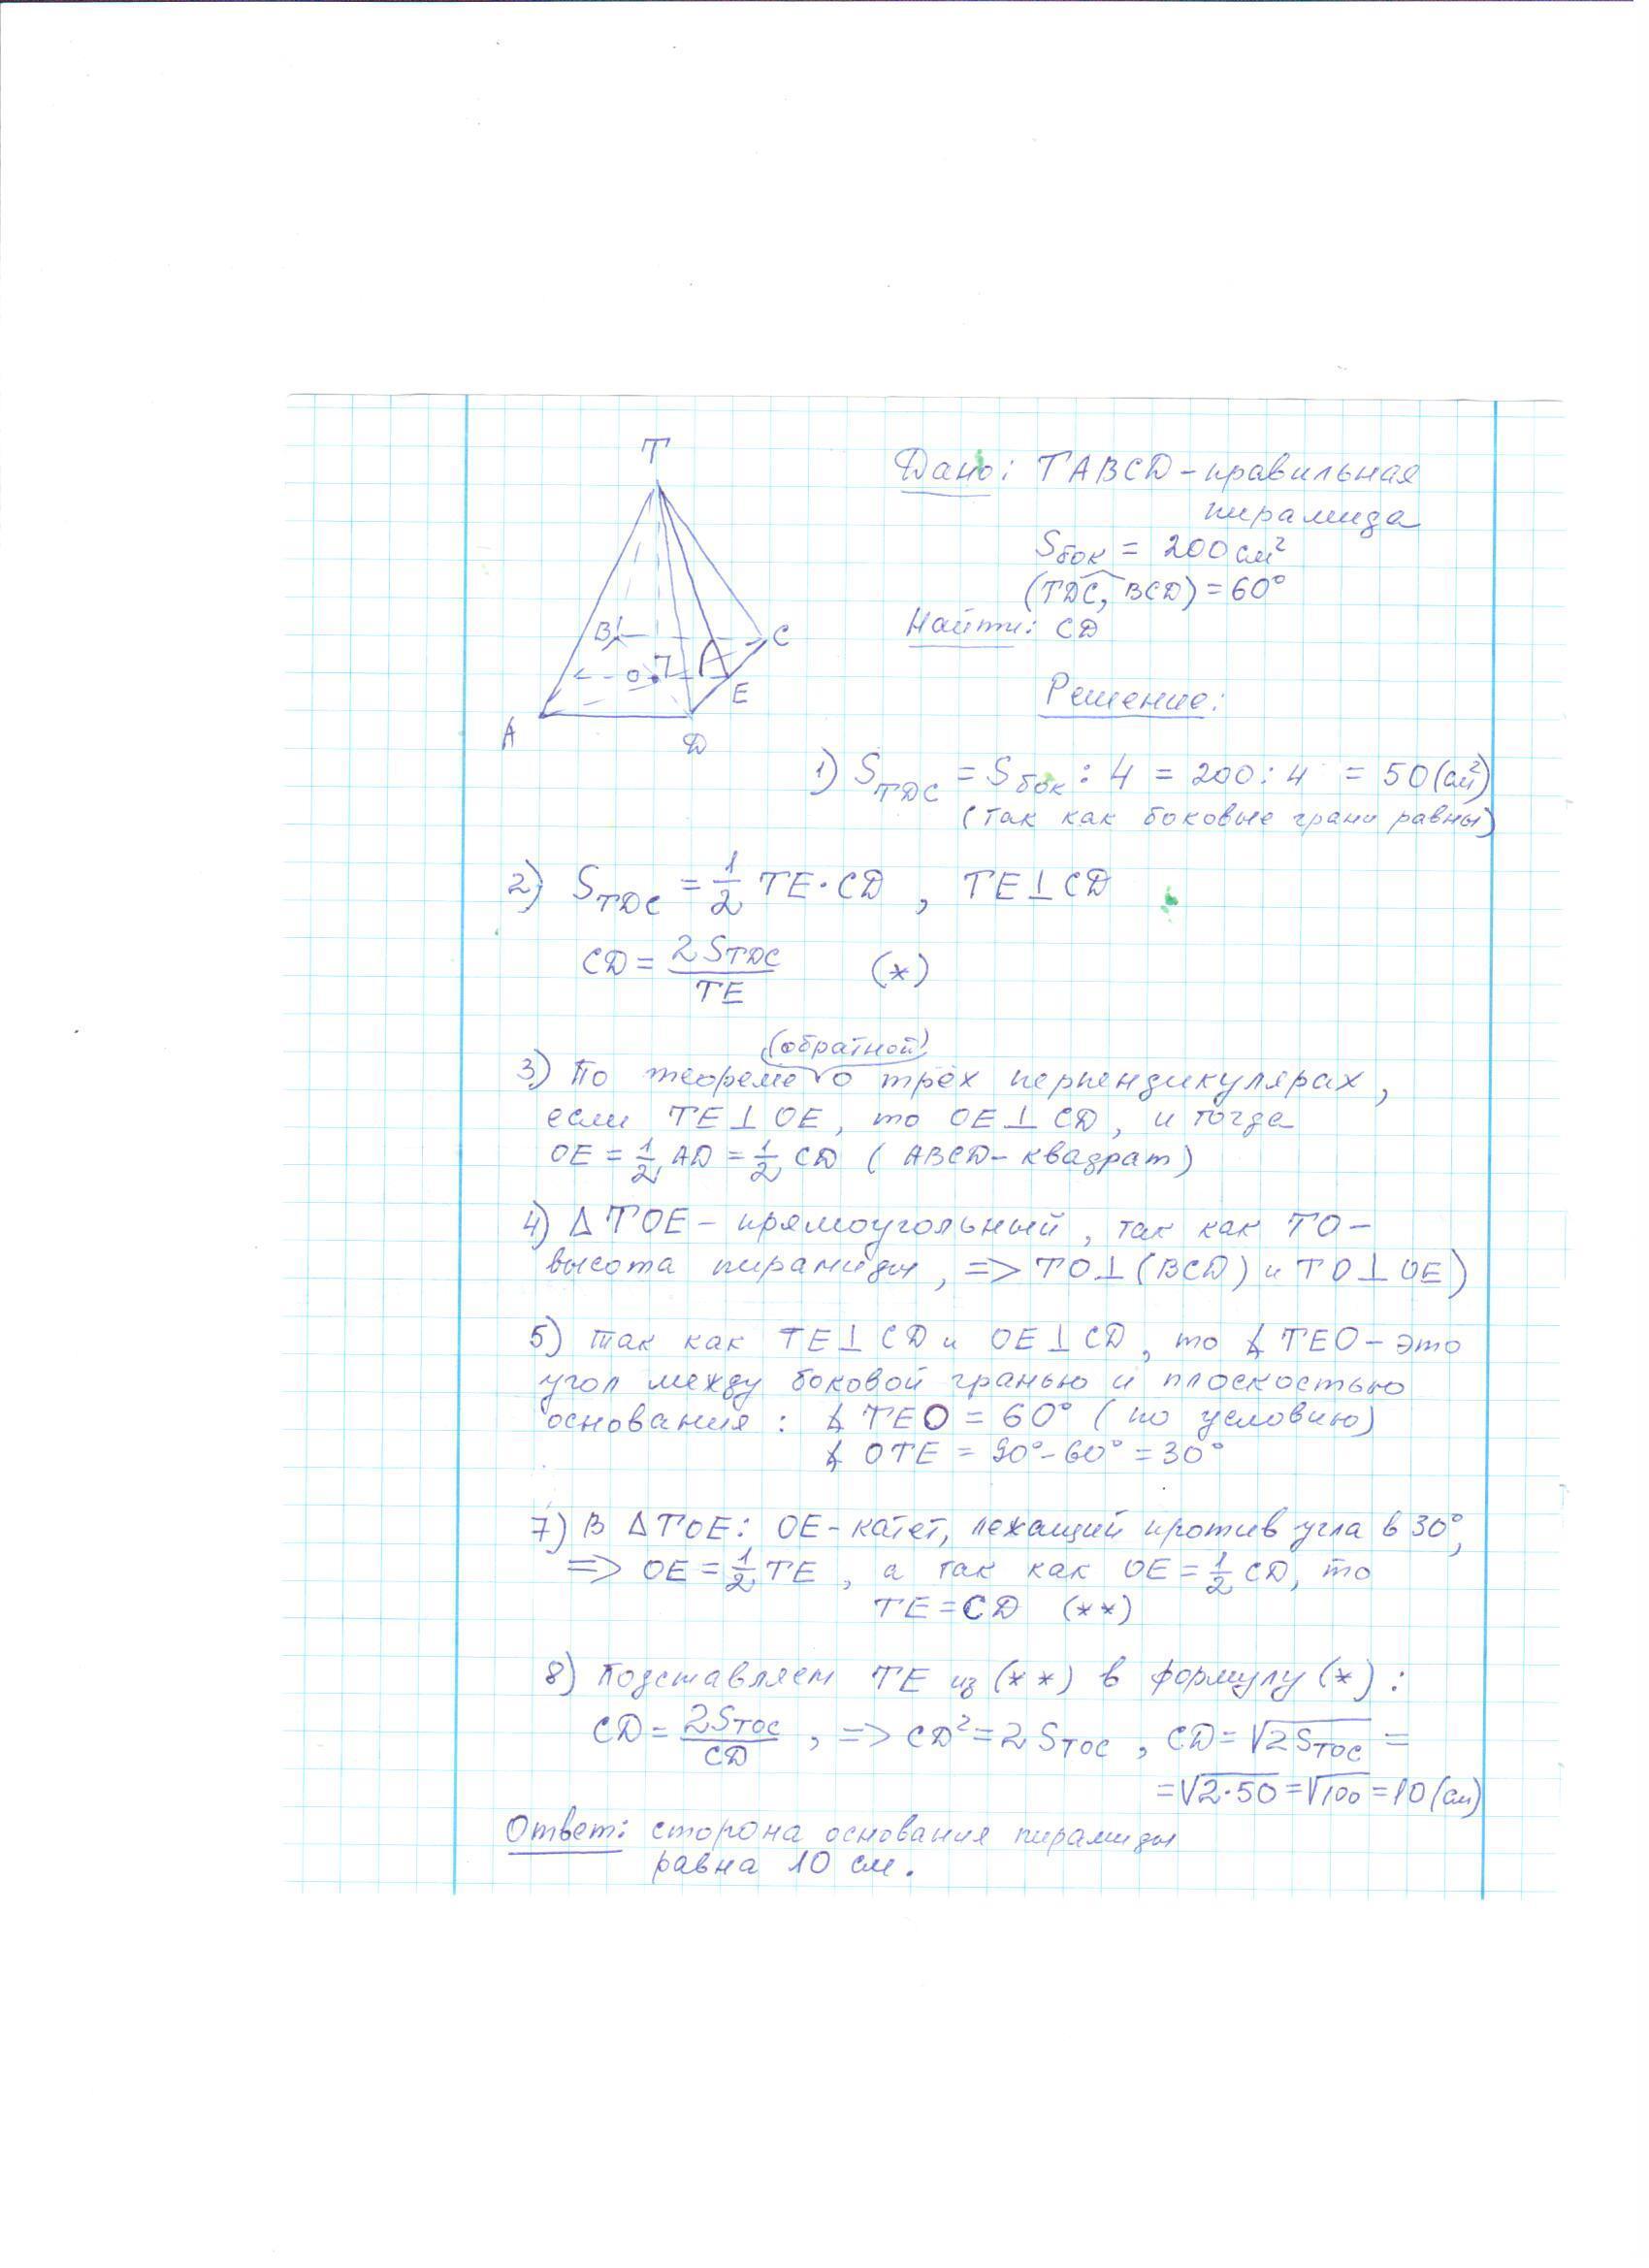 T
B
C
O
E
A
D
Дано: TABCD - правильная
пирамида
Sбок = 200 см²
(TDC, BCD) = 60°
Найти: CD
Решение:
1) S_TDC = Sбок : 4 = 200 : 4 = 50 (см²)
(так как боковые грани равны)
2) S_TDC = 1/2 TE · CD , TE ⊥ CD
CD = 2S_TDC / TE (*)
(обратной)
3) По теореме о трёх перпендикулярах,
если TE ⊥ OE, то OE ⊥ CD, и тогда
OE = 1/2 AD = 1/2 CD ( ABCD - квадрат)
4) Δ TOE - прямоугольный, так как TO -
высота пирамиды, => TO ⊥ (BCD) и TO ⊥ OE)
5) Так как TE ⊥ CD и OE ⊥ CD, то ∡ TEO - это
угол между боковой гранью и плоскостью
основания : ∡ TEO = 60° ( по условию)
∡ OTE = 90° - 60° = 30°
7) В Δ TOE: OE - катет, лежащий против угла в 30°,
=> OE = 1/2 TE , а так как OE = 1/2 CD, то
TE = CD (**)
8) Подставляем TE из (**) в формулу (*) :
CD = 2S_TDC / CD , => CD² = 2 S_TDC , CD = √2 S_TDC =
= √2·50 = √100 = 10 (см)
Ответ: сторона основания пирамиды
равна 10 см.